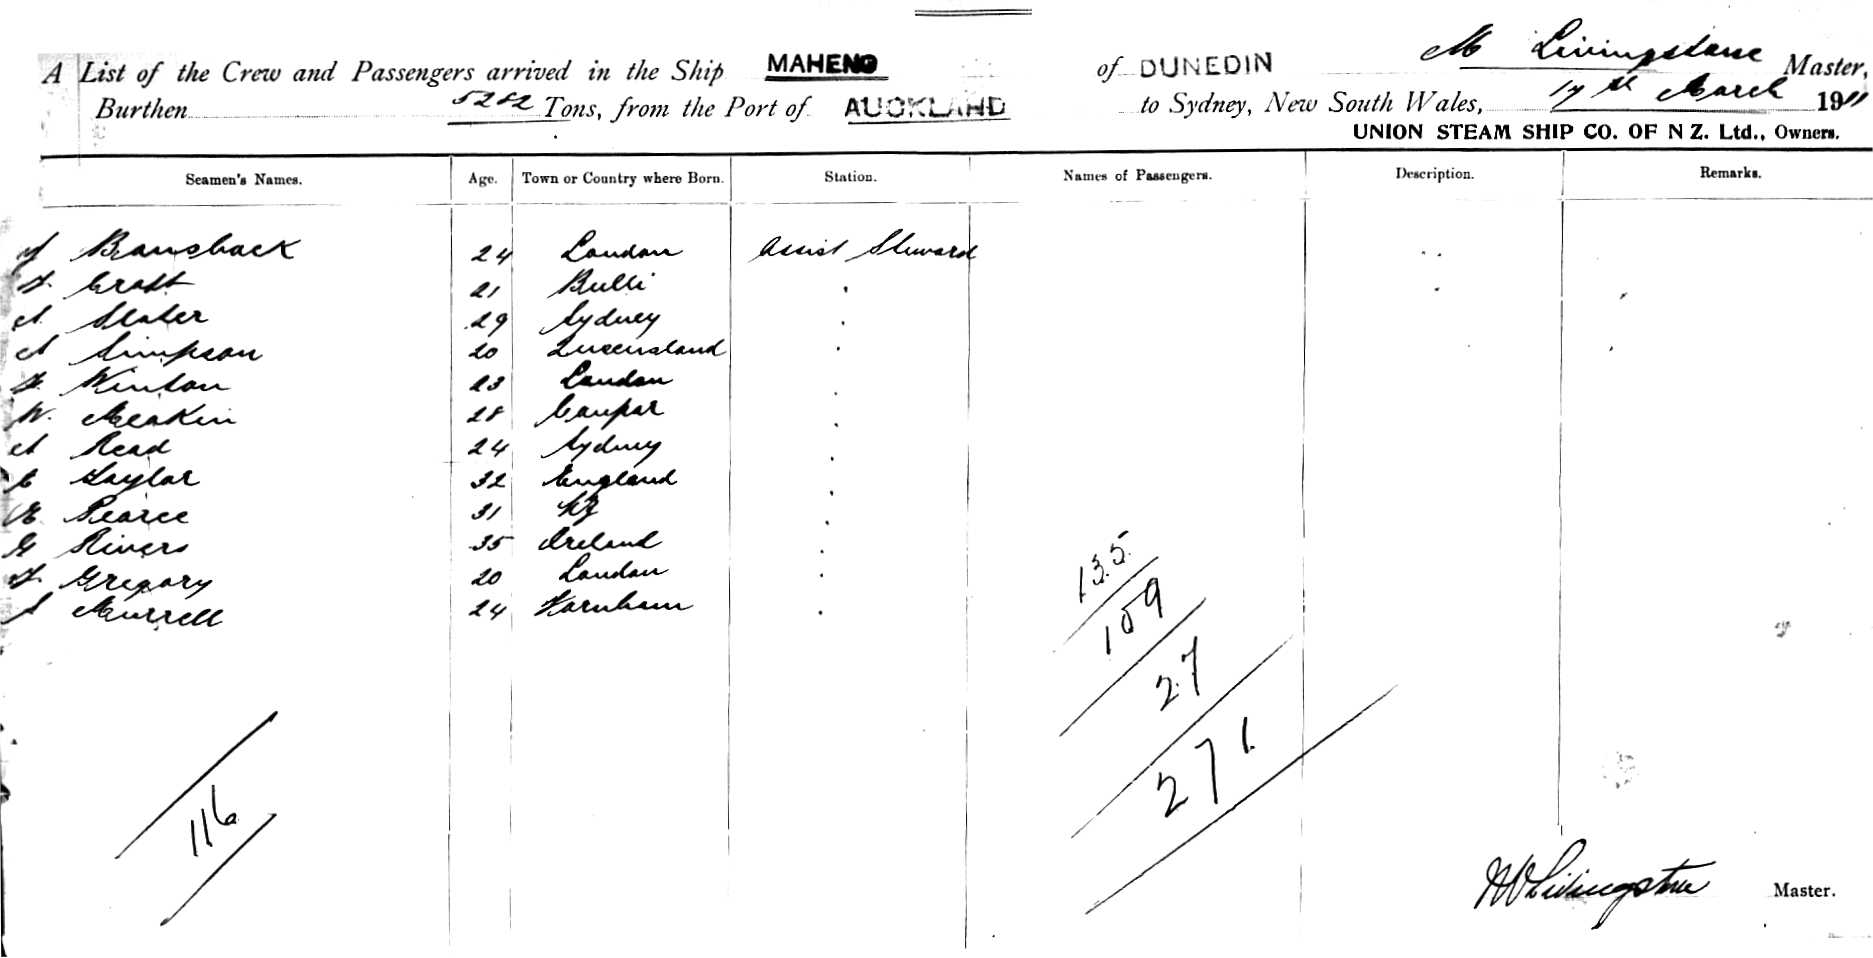 A List of the Crew and Passengers arrived in the Ship MAHENO of DUNEDIN M Livingstone Master,
Burthen 5282 Tons, from the Port of AUCKLAND to Sydney, New South Wales, 17th March 1911
UNION STEAM SHIP CO. OF N Z. Ltd., Owners.
Seamen's Names. Age. Town or Country where Born. Station. Names of Passengers. Description. Remarks.
Bransback 24 London Assist Steward
Croft 21 Bulli
A Slater 29 Sydney
A Simpson 20 Queensland
Winton 23 London
W. Meakin 28 Coupar
A Read 24 Sydney
C Taylor 32 England
E Pearce 31 NZ
G Rivers 35 Ireland
Gregory 20 London
Murrell 24 Farnham
135
109
27
271
116
Livingstone Master.